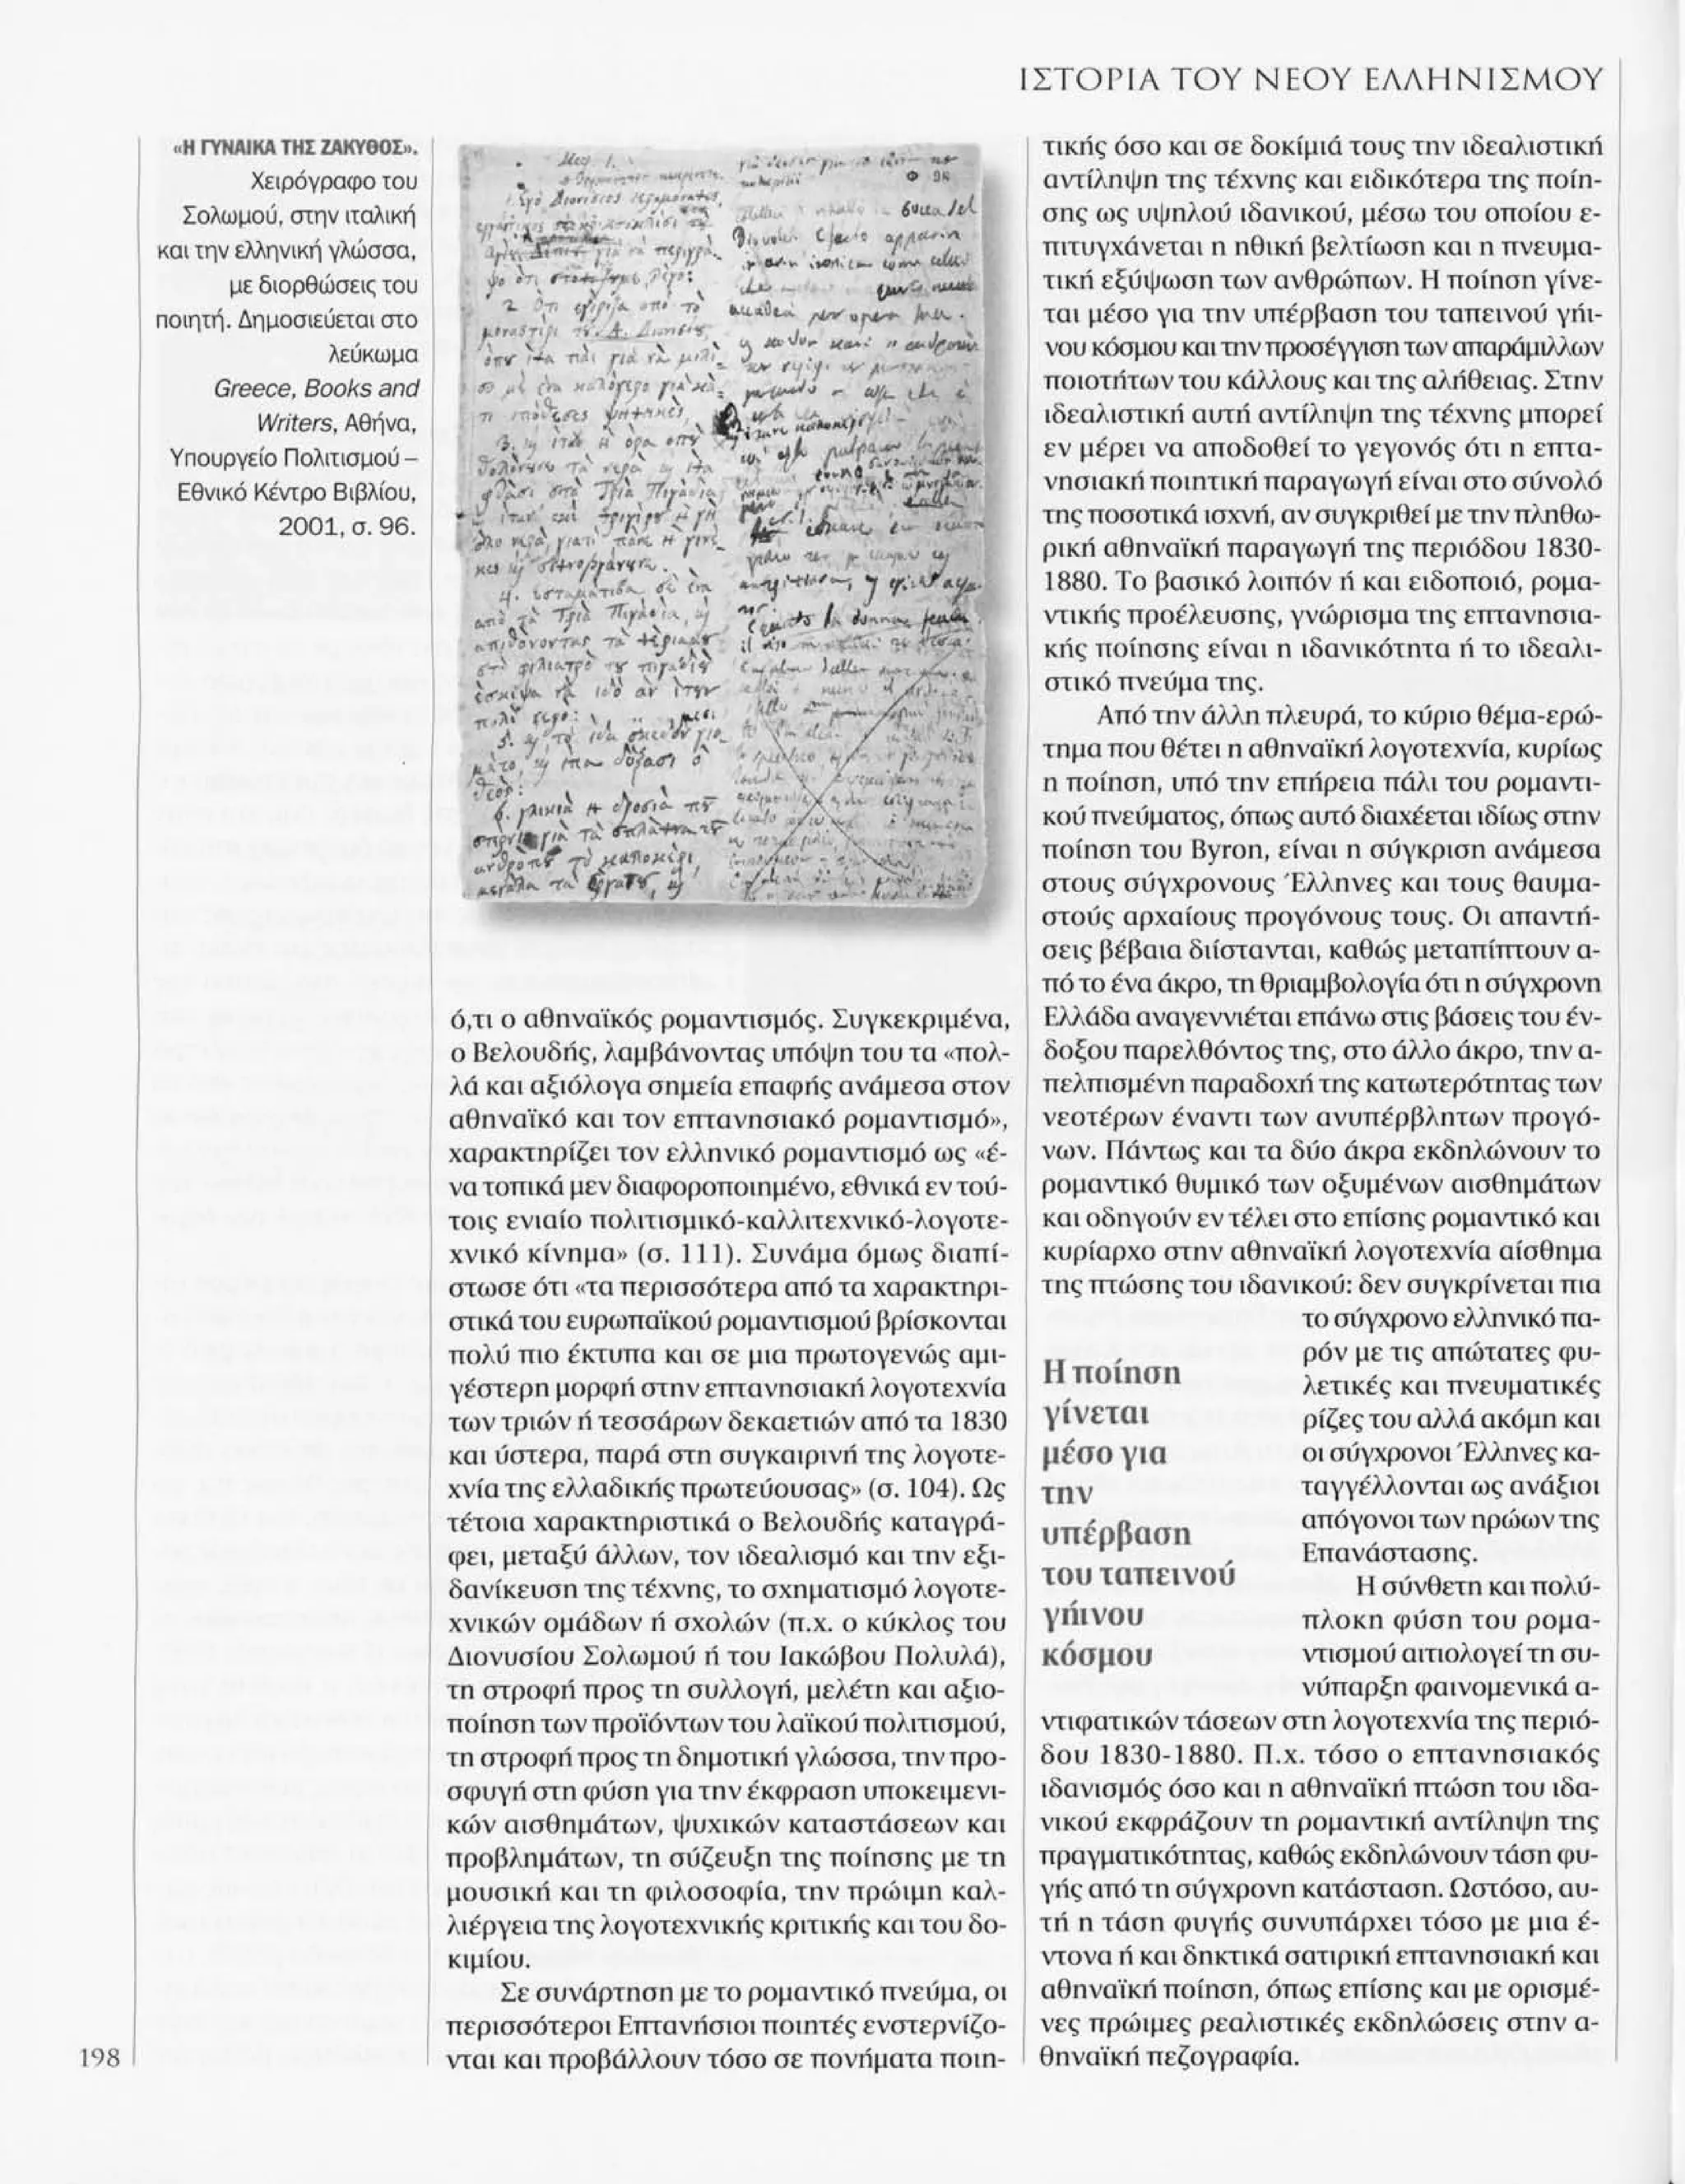 ΙΣΤΟΡΙΑ ΤΟΥ ΝΕΟΥ ΕΛΛΗΝΙΣΜΟΥ
«Η ΓΥΝΑΙΚΑ ΤΗΣ ΖΑΚΥΘΟΣ».
Χειρόγραφο του
Σολωμού, στην ιταλική
και την ελληνική γλώσσα,
με διορθώσεις του
ποιητή. Δημοσιεύεται στο
λεύκωμα
Greece, Books and
Writers, Αθήνα,
Υπουργείο Πολιτισμού –
Εθνικό Κέντρο Βιβλίου,
2001, σ. 96.
ό,τι ο αθηναϊκός ρομαντισμός. Συγκεκριμένα,
ο Βελουδής, λαμβάνοντας υπόψη του τα «πολ-
λά και αξιόλογα σημεία επαφής ανάμεσα στον
αθηναϊκό και τον επτανησιακό ρομαντισμό»,
χαρακτηρίζει τον ελληνικό ρομαντισμό ως «έ-
να τοπικά μεν διαφοροποιημένο, εθνικά εν τού-
τοις ενιαίο πολιτισμικό-καλλιτεχνικό-λογοτε-
χνικό κίνημα» (σ. 111). Συνάμα όμως διαπί-
στωσε ότι «τα περισσότερα από τα χαρακτηρι-
στικά του ευρωπαϊκού ρομαντισμού βρίσκονται
πολύ πιο έκτυπα και σε μια πρωτογενώς αμι-
γέστερη μορφή στην επτανησιακή λογοτεχνία
των τριών ή τεσσάρων δεκαετιών από τα 1830
και ύστερα, παρά στη συγκαιρινή της λογοτε-
χνία της ελλαδικής πρωτεύουσας» (σ. 104). Ως
τέτοια χαρακτηριστικά ο Βελουδής καταγρά-
φει, μεταξύ άλλων, τον ιδεαλισμό και την εξι-
δανίκευση της τέχνης, το σχηματισμό λογοτε-
χνικών ομάδων ή σχολών (π.χ. ο κύκλος του
Διονυσίου Σολωμού ή του Ιακώβου Πολυλά),
τη στροφή προς τη συλλογή, μελέτη και αξιο-
ποίηση των προϊόντων του λαϊκού πολιτισμού,
τη στροφή προς τη δημοτική γλώσσα, την προ-
σφυγή στη φύση για την έκφραση υποκειμενι-
κών αισθημάτων, ψυχικών καταστάσεων και
προβλημάτων, τη σύζευξη της ποίησης με τη
μουσική και τη φιλοσοφία, την πρώιμη καλ-
λιέργεια της λογοτεχνικής κριτικής και του δο-
κιμίου.
Σε συνάρτηση με το ρομαντικό πνεύμα, οι
περισσότεροι Επτανήσιοι ποιητές ενστερνίζο-
νται και προβάλλουν τόσο σε πονήματα ποιη-
τικής όσο και σε δοκίμιά τους την ιδεαλιστική
αντίληψη της τέχνης και ειδικότερα της ποίη-
σης ως υψηλού ιδανικού, μέσω του οποίου ε-
πιτυγχάνεται η ηθική βελτίωση και η πνευμα-
τική εξύψωση των ανθρώπων. Η ποίηση γίνε-
ται μέσο για την υπέρβαση του ταπεινού γήι-
νου κόσμου και την προσέγγιση των απαράμιλλων
ποιοτήτων του κάλλους και της αλήθειας. Στην
ιδεαλιστική αυτή αντίληψη της τέχνης μπορεί
εν μέρει να αποδοθεί το γεγονός ότι η επτα-
νησιακή ποιητική παραγωγή είναι στο σύνολό
της ποσοτικά ισχνή, αν συγκριθεί με την πληθω-
ρική αθηναϊκή παραγωγή της περιόδου 1830-
1880. Το βασικό λοιπόν ή και ειδοποιό, ρομα-
ντικής προέλευσης, γνώρισμα της επτανησια-
κής ποίησης είναι η ιδανικότητα ή το ιδεαλι-
στικό πνεύμα της.
Από την άλλη πλευρά, το κύριο θέμα-ερώ-
τημα που θέτει η αθηναϊκή λογοτεχνία, κυρίως
η ποίηση, υπό την επήρεια πάλι του ρομαντι-
κού πνεύματος, όπως αυτό διαχέεται ιδίως στην
ποίηση του Byron, είναι η σύγκριση ανάμεσα
στους σύγχρονους Έλληνες και τους θαυμα-
στούς αρχαίους προγόνους τους. Οι απαντή-
σεις βέβαια διίστανται, καθώς μεταπίπτουν α-
πό το ένα άκρο, τη θριαμβολογία ότι η σύγχρονη
Ελλάδα αναγεννιέται επάνω στις βάσεις του έν-
δοξου παρελθόντος της, στο άλλο άκρο, την α-
πελπισμένη παραδοχή της κατωτερότητας των
νεοτέρων έναντι των ανυπέρβλητων προγό-
νων. Πάντως και τα δύο άκρα εκδηλώνουν το
ρομαντικό θυμικό των οξυμένων αισθημάτων
και οδηγούν εν τέλει στο επίσης ρομαντικό και
κυρίαρχο στην αθηναϊκή λογοτεχνία αίσθημα
της πτώσης του ιδανικού: δεν συγκρίνεται πια
το σύγχρονο ελληνικό πα-
ρόν με τις απώτατες φυ-
λετικές και πνευματικές
ρίζες του αλλά ακόμη και
οι σύγχρονοι Έλληνες κα-
ταγγέλλονται ως ανάξιοι
απόγονοι των ηρώων της
Επανάστασης.
Η σύνθετη και πολύ-
πλοκη φύση του ρομα-
ντισμού αιτιολογεί τη συ-
νύπαρξη φαινομενικά α-
ντιφατικών τάσεων στη λογοτεχνία της περιό-
δου 1830-1880. Π.χ. τόσο ο επτανησιακός
ιδανισμός όσο και η αθηναϊκή πτώση του ιδα-
νικού εκφράζουν τη ρομαντική αντίληψη της
πραγματικότητας, καθώς εκδηλώνουν τάση φυ-
γής από τη σύγχρονη κατάσταση. Ωστόσο, αυ-
τή η τάση φυγής συνυπάρχει τόσο με μια έ-
ντονα ή και δηκτικά σατιρική επτανησιακή και
αθηναϊκή ποίηση, όπως επίσης και με ορισμέ-
νες πρώιμες ρεαλιστικές εκδηλώσεις στην α-
θηναϊκή πεζογραφία.
Η ποίηση
γίνεται
μέσο για
την
υπέρβαση
του ταπεινού
γήινου
κόσμου
198